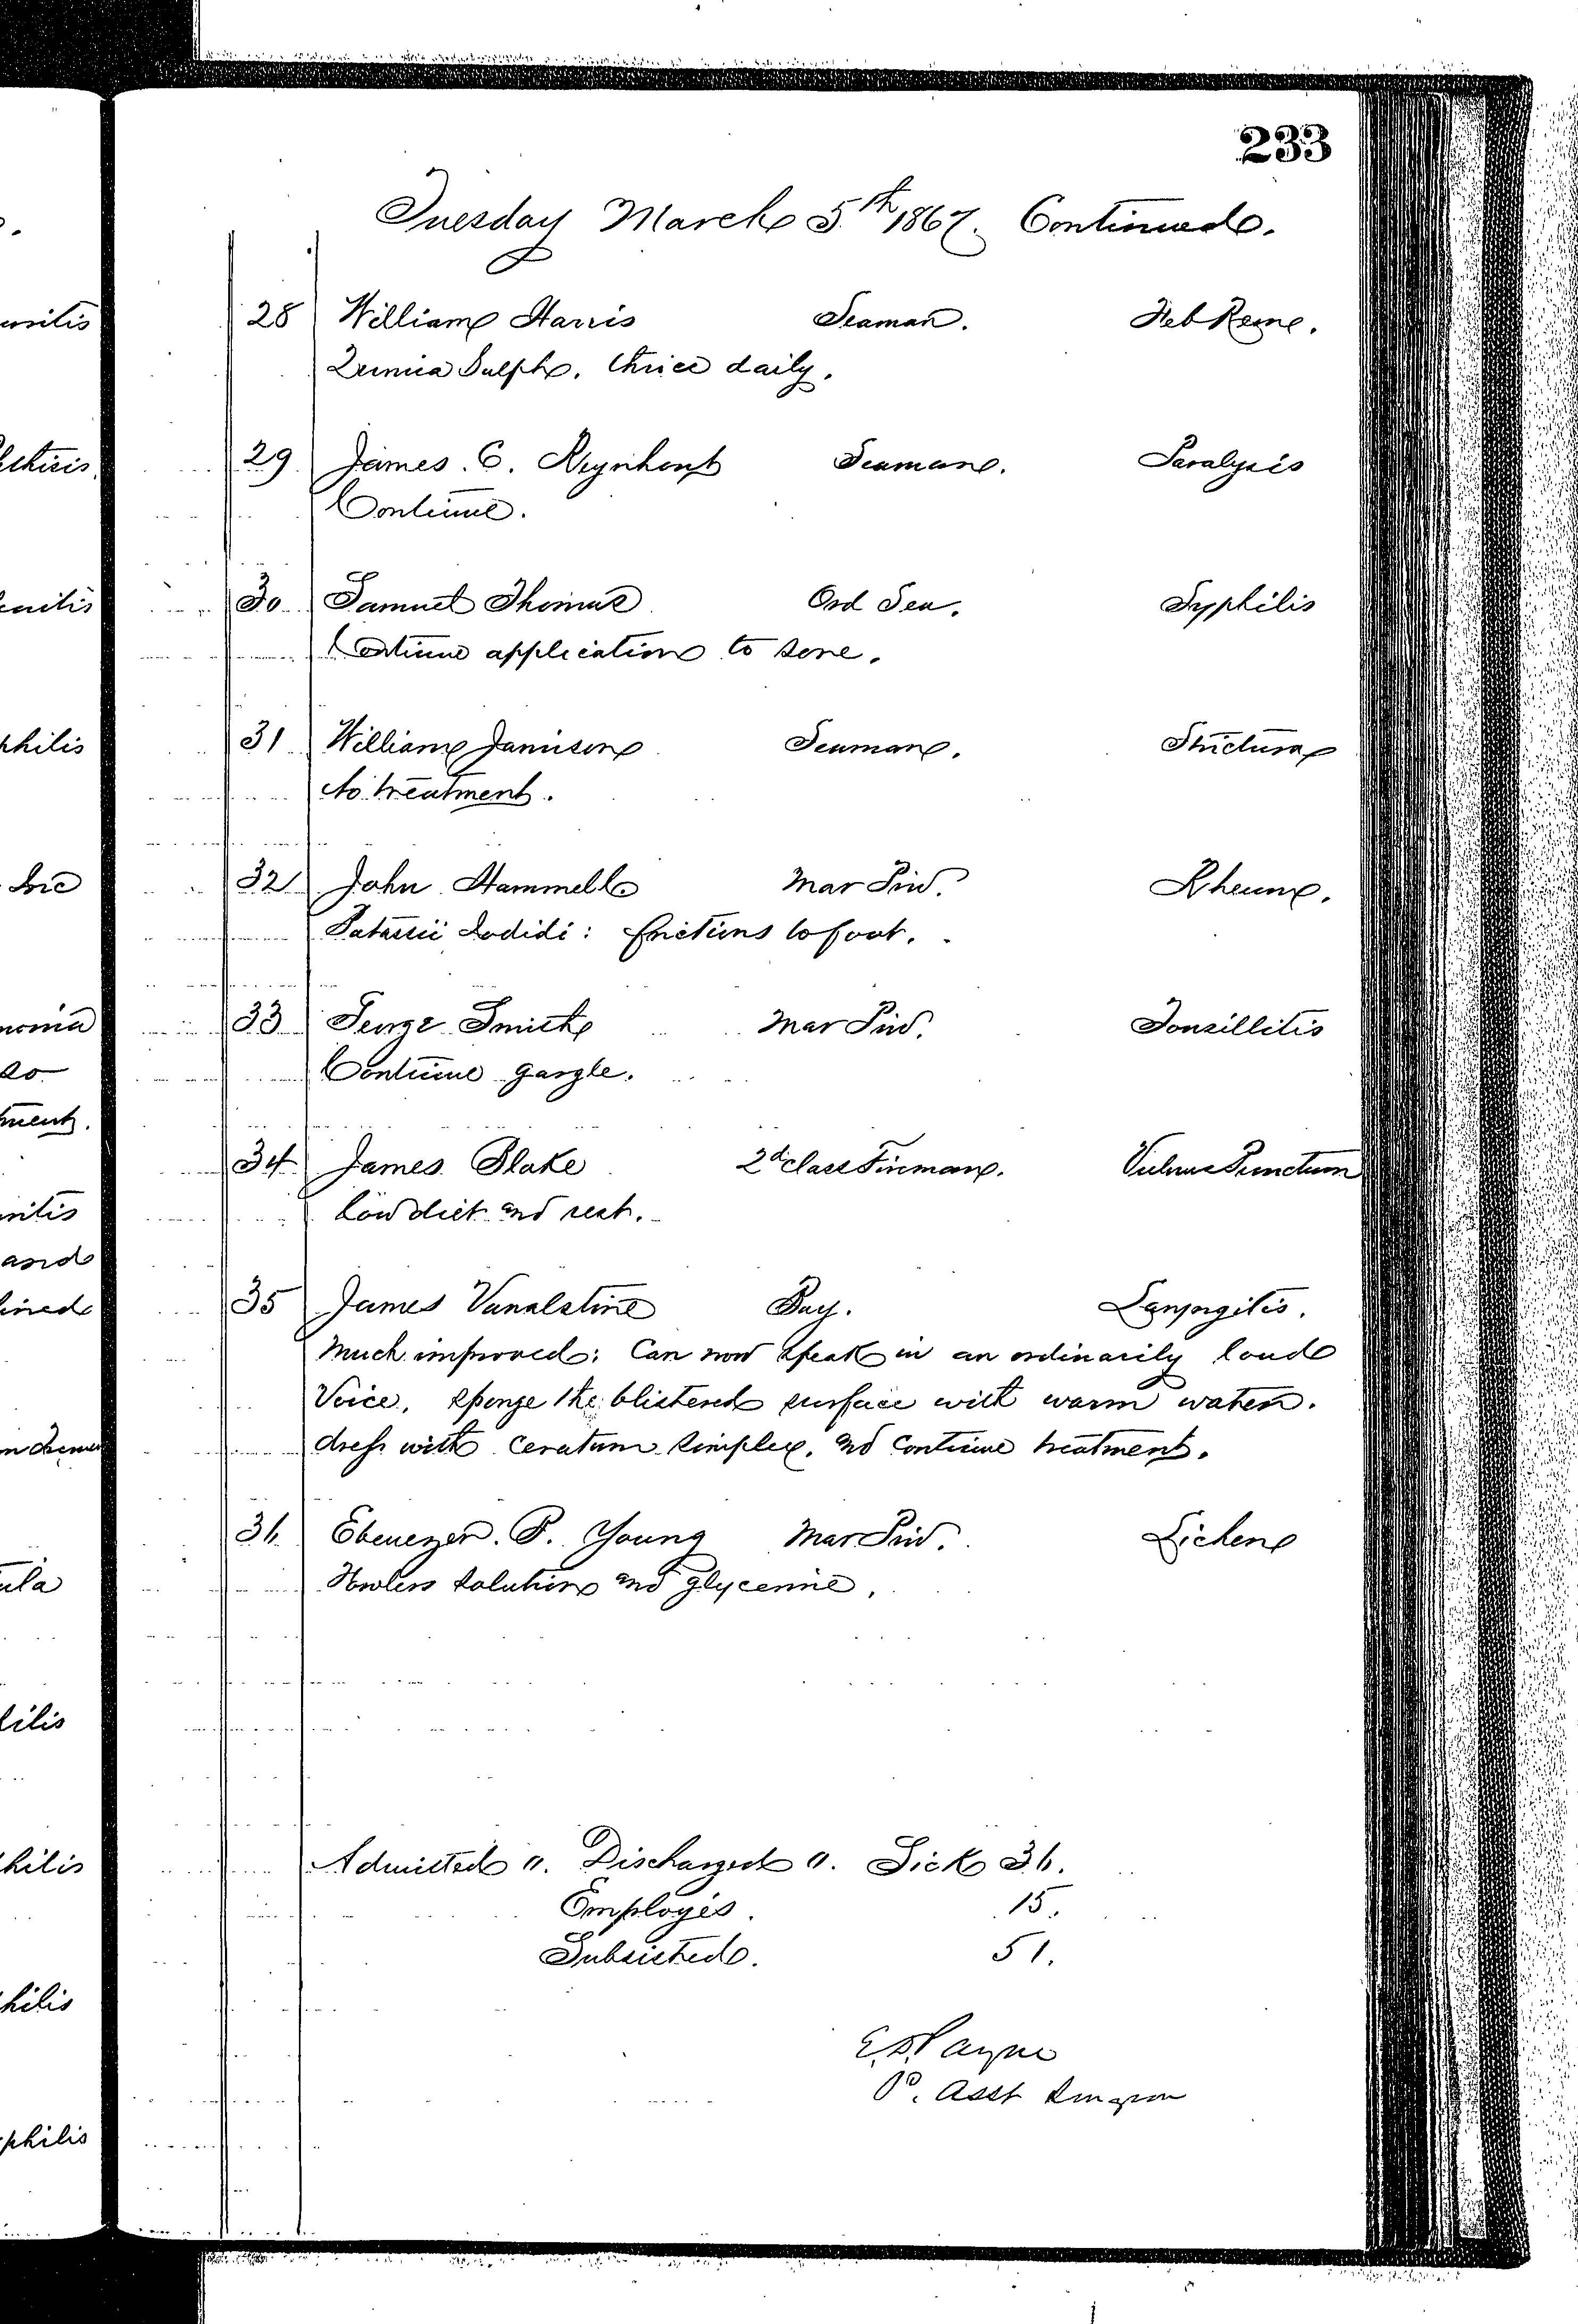 233
Tuesday March 5th 1867. Continued.
28 William Harris Seaman. Feb Rem.
Quinia Sulph. thrice daily.
29 James. C. Seaman. Paralysis
Continue.
30 Samuel Thomas Ord Sea. Syphilis
Continue application to sore.
31 William Jamison Seaman. Strictura
No treatment.
32 John Hammell Mar Priv. Rheum.
Potassii Iodidi: frictions to foot.
33 George Smith Mar Priv. Tonsillitis
Continue gargle.
34 James Blake 2d class Fireman. Vulnus Punctum
Low diet and rest.
35 James Vanalstine Bay. Laryngitis.
Much improved: Can now speak in an ordinarily loud
Voice. sponge the blistered surface with warm water.
dress with ceratum simplex. and continue treatment.
36 Ebenezer. P. Young Mar Priv. Lichen
Fowlers solution and glycerine.
Admitted 0. Discharged 0. Sick 36.
Employés. 15.
Subsisted. 51.
Payne
P. Asst Surgeon